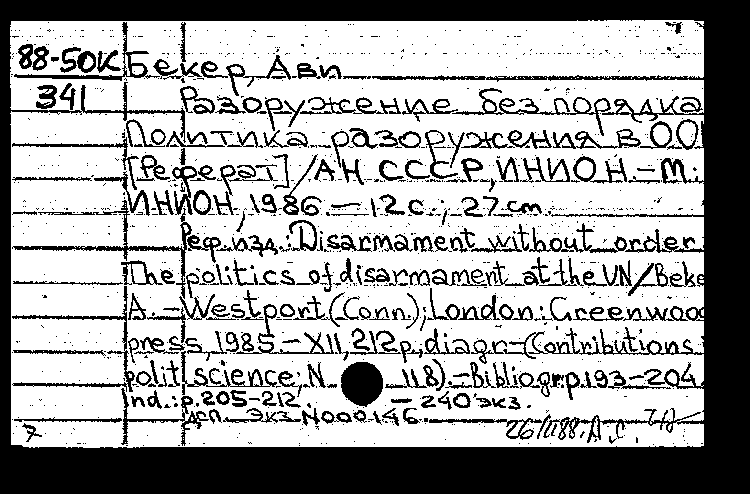 88-50К Бекер, Ави
341 Разоружение без порядка
Политика разоружения в ООН
[Реферат] / АН СССР, ИНИОН. – М.:
ИНИОН, 1986. – 12 с.; 27 cm.
Реф. изд.: Disarmament without order
The politics of disarmament at the UN / Beke
A. – Westport (Conn.); London: Greenwood
press, 1985. – XII, 212 p., diagr. – (Contributions
polit. science; N 118). – Bibliogr. p. 193–204.
Ind.: p. 205–212. – 240 экз.
деп. экз. N000146.
7